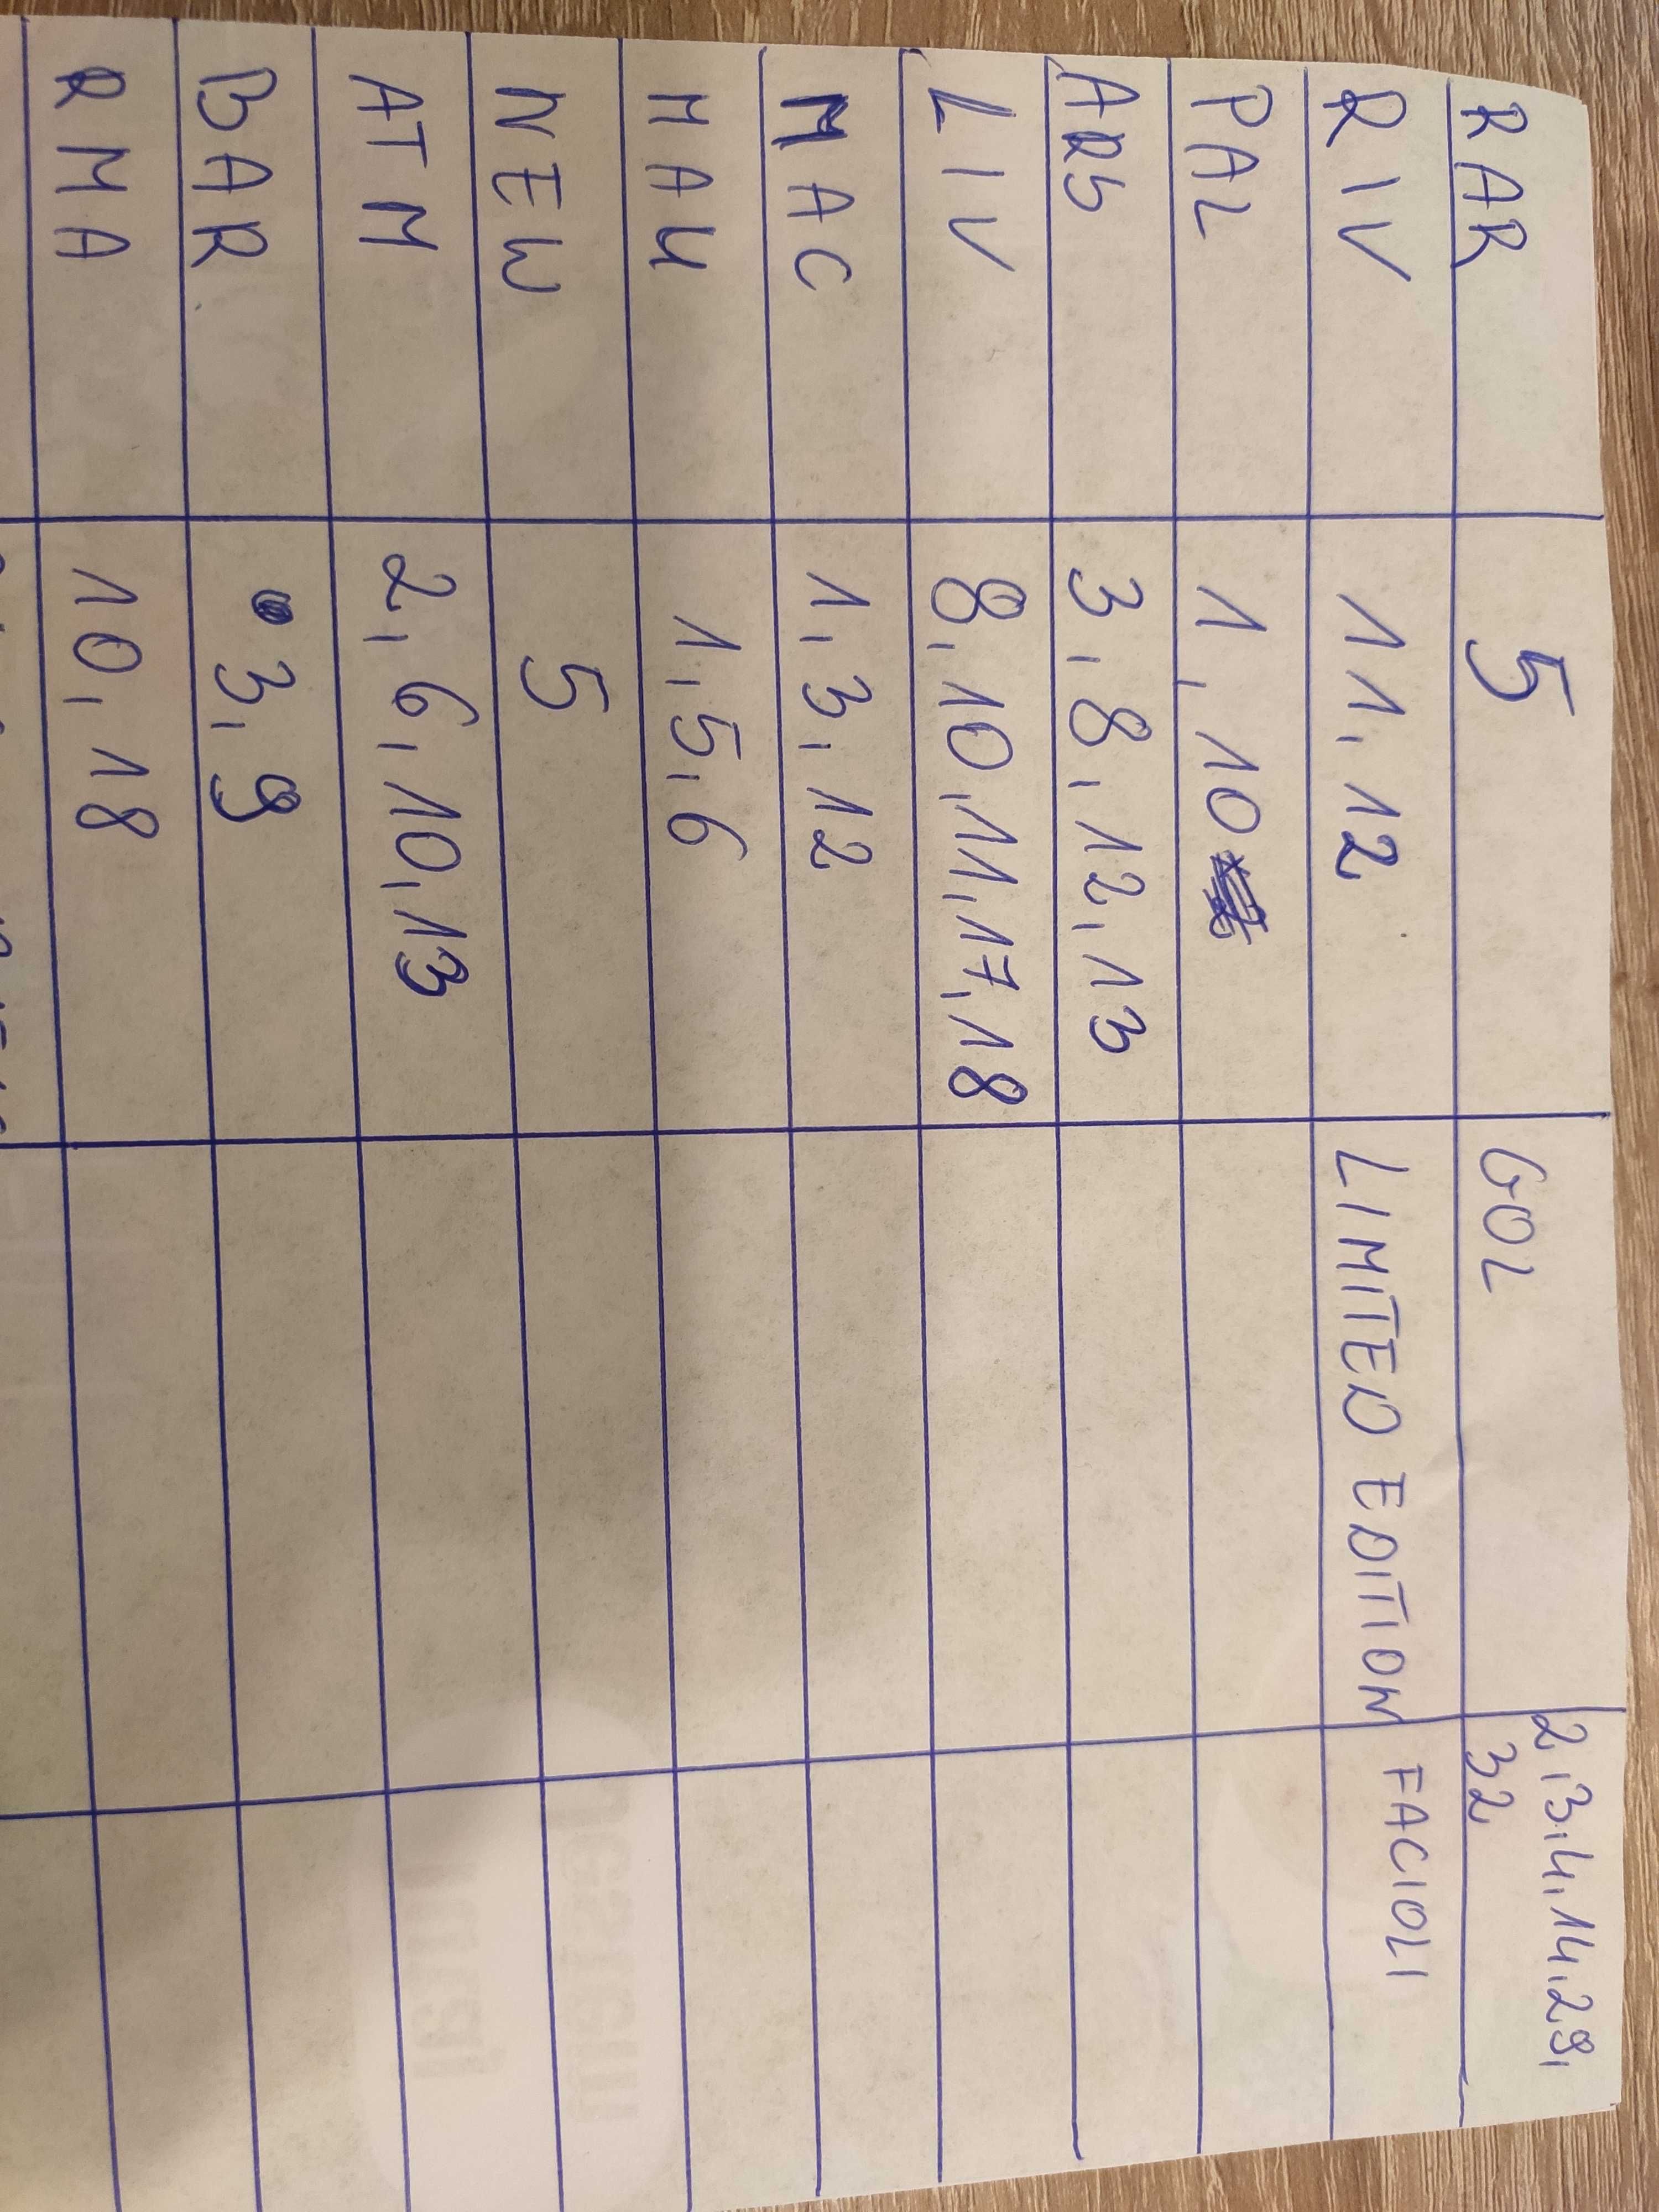 RAR 5 GOL 2,3,4,14,29,
32
RIV 11,12 LIMITED EDITION FACIOLI
PAL 1,10
ARS 3,8,12,13
LIV 8,10,11,17,18
MAC 1,3,12
MAU 1,5,6
NEW 5
ATM 2,6,10,13
BAR 3,9
RMA 10,18